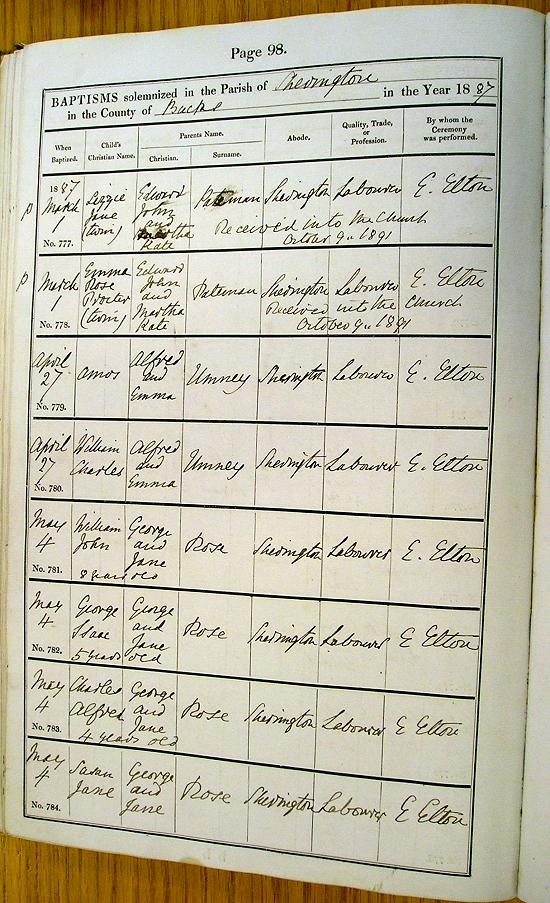 Page 98.
BAPTISMS solemnized in the Parish of Sherington
in the County of Bucks in the Year 1887
When Baptized. Child's Christian Name. Parents Name. Christian. Surname. Abode. Quality, Trade, or Profession. By whom the Ceremony was performed.
1887
p March 1 Lizzie Jane (twin) Edward John and Martha Kate Pateman Sherington Labourer E. Elton
Received into the Church
October 9th 1891
No. 777.
p March 1 Emma Rose Procter (twin) Edward John and Martha Kate Pateman Sherington Labourer E. Elton
Received into the Church
October 9th 1891
No. 778.
April 27 Amos Alfred and Emma Umney Sherington Labourer E. Elton
No. 779.
April 27 William Charles Alfred and Emma Umney Sherington Labourer E. Elton
No. 780.
May 4 William John George and Jane Rose Sherington Labourer E. Elton
No. 781. 8 years old
May 4 George Isaac George and Jane Rose Sherington Labourer E Elton
No. 782. 5 years old
May 4 Charles Alfred George and Jane Rose Sherington Labourer E Elton
No. 783. 4 years old
May 4 Susan Jane George and Jane Rose Sherington Labourer E Elton
No. 784.